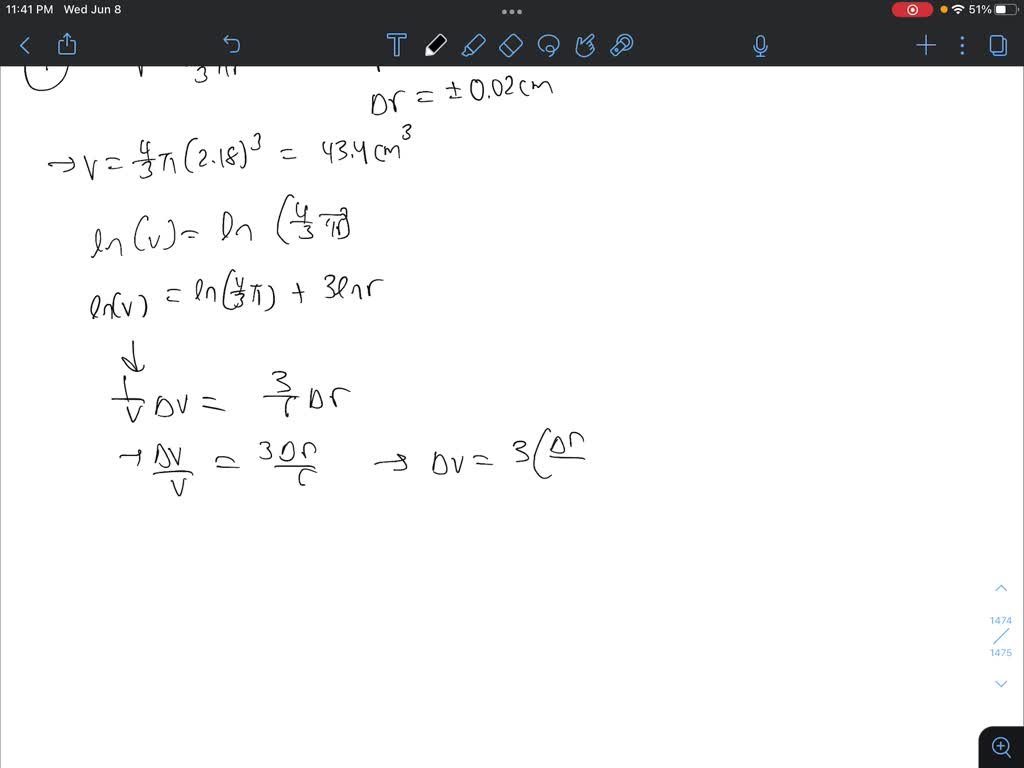 11:41 PM Wed Jun 8
51%
T
Δr = ±0.02 cm
→ V = 4/3 π (2.18)³ = 43.4 cm³
ln(V) = ln (4/3 πr³)
ln(V) = ln(4/3 π) + 3lnr
↓
1/V ΔV = 3/r Δr
→ ΔV/V = 3Δr/r → ΔV = 3(Δr
1474
1475